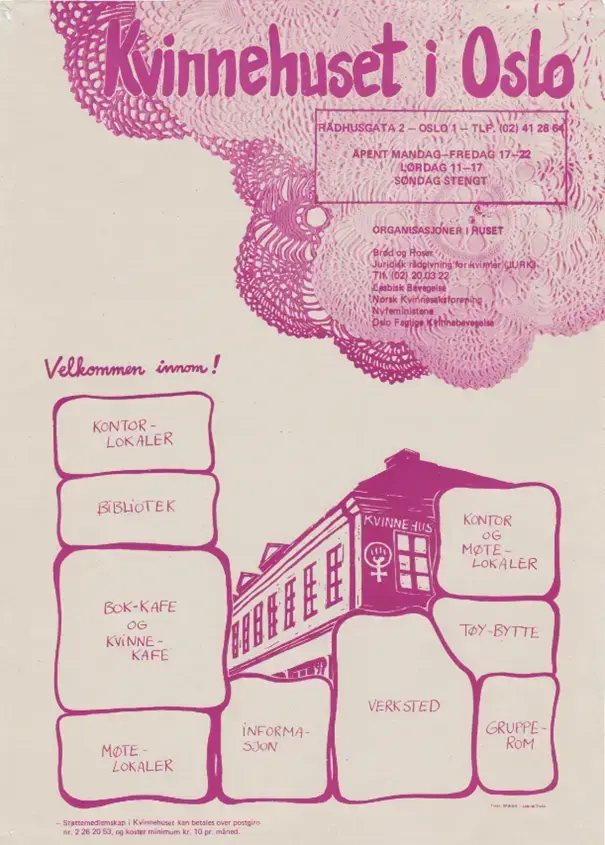 Kvinnehuset i Oslo
RÅDHUSGATA 2 – OSLO 1 – TLF. (02) 41 28 64
ÅPENT MANDAG–FREDAG 17–22
LØRDAG 11–17
SØNDAG STENGT
ORGANISASJONER I HUSET
Brød og Roser
Juridisk rådgivning for kvinner (JURK)
Tlf. (02) 20 03 22
Lesbisk Bevegelse
Norsk Kvinnesaksforening
Nyfeministene
Oslo Faglige Kvinnebevegelse
Velkommen innom!
KONTOR-
LOKALER
BIBLIOTEK
BOK-KAFE
OG
KVINNE-
KAFE
MØTE-
LOKALER
INFORMA-
SJON
VERKSTED
KVINNEHUS
KONTOR
OG
MØTE-
LOKALER
TØY-BYTTE
GRUPPE-
ROM
– Støttemedlemskap i Kvinnehuset kan betales over postgiro
nr. 2 26 20 53, og koster minimum kr. 10 pr. måned.